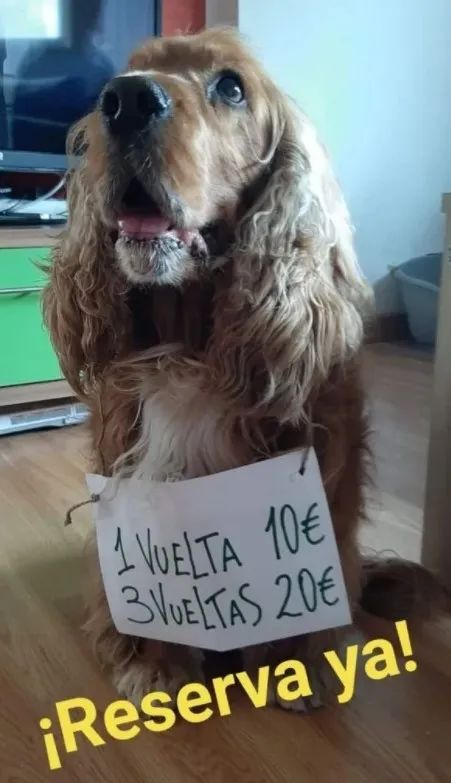 1 VUELTA 10€
3 VUELTAS 20€
¡Reserva ya!